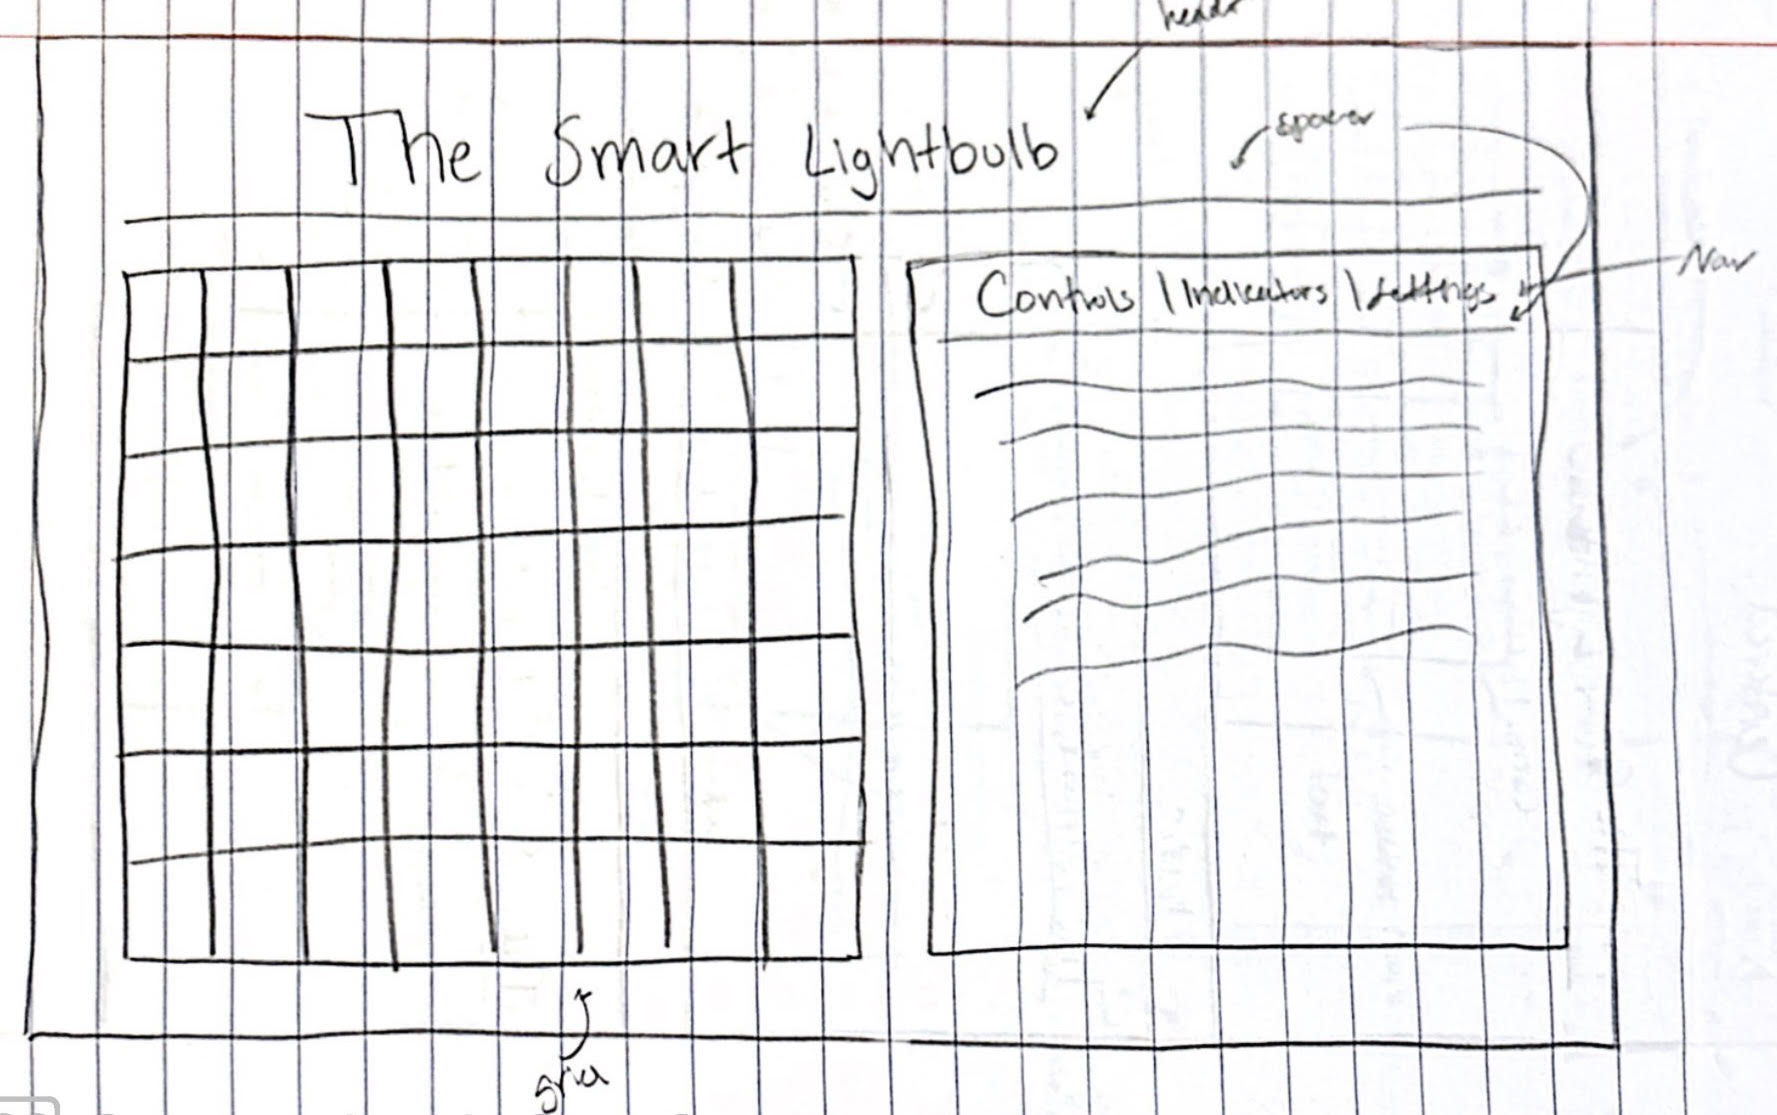 The Smart Lightbulb
spacer
Nav
Controls | Indicators | Settings
grid